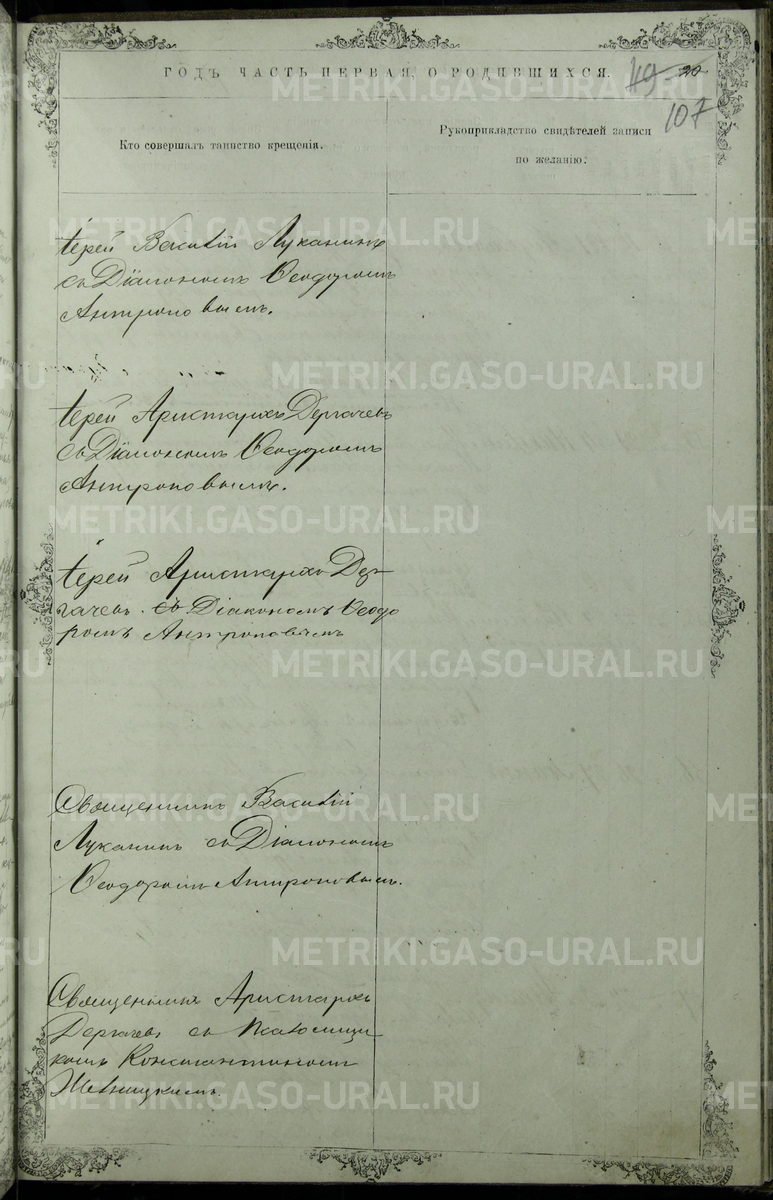 ГОДЪ ЧАСТЬ ПЕРВАЯ, О РОДИВШИХСЯ. 49 20
107
Кто совершалъ таинство крещенія.
Рукоприкладство свидѣтелей записи
по желанію.
Іерей Василій Луканинъ
съ Діакономъ Ѳеодоромъ
Антроповымъ.
Іерей Аристархъ Дергачевъ
съ Діакономъ Ѳеодоромъ
Антроповымъ.
Іерей Аристархъ Дер-
гачевъ съ Діакономъ Ѳеодо
ромъ Антроповымъ
Священникъ Василій
Луканинъ съ Діакономъ
Ѳеодоромъ Антроповымъ.
Священникъ Аристархъ
Дергачевъ съ Псаломщи
комъ Константиномъ
METRIKI.GASO-URAL.RU